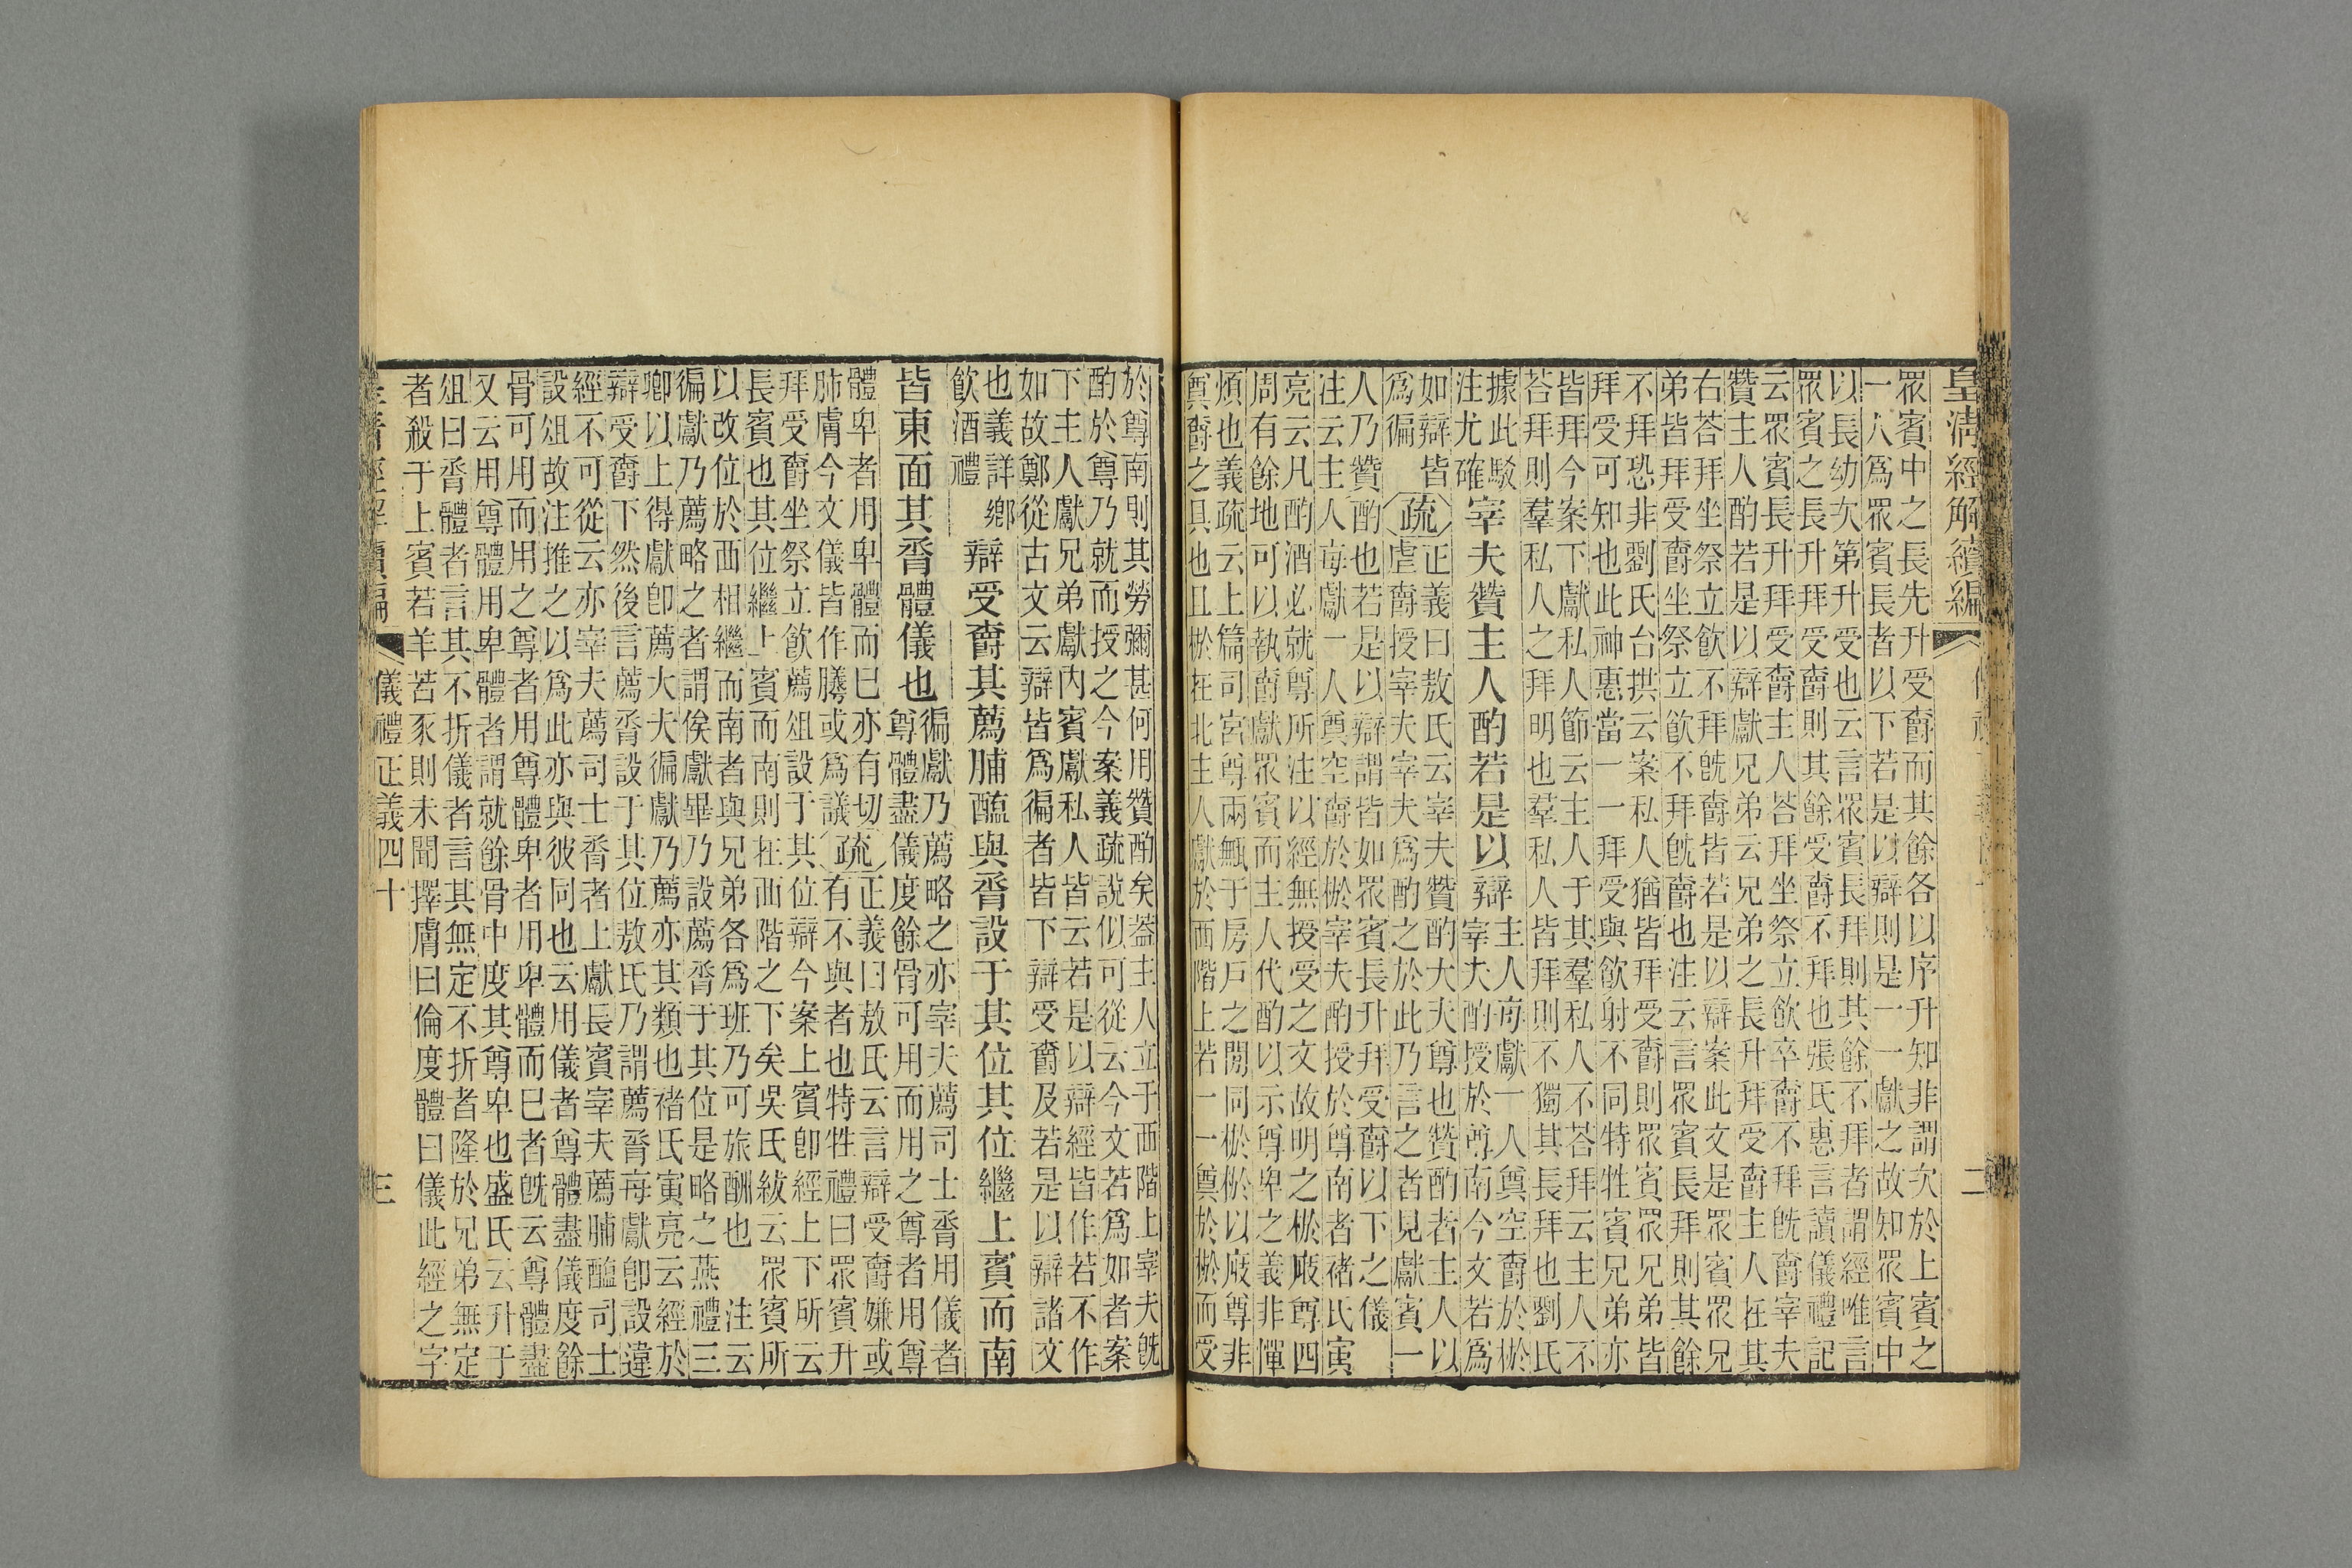 皇清經解續編
二
眾賓中之長先升受爵而其餘各以序升知非謂次於上賓之
一人爲眾賓長者以下若是以辯則是一一獻之故知眾賓中
以長幼次第升受也云言眾賓長拜則其餘不拜者謂經唯言
眾賓之長升拜受爵則其餘受爵不拜也張氏惠言讀儀禮記
云眾賓長升拜受爵主人荅拜坐祭立飲卒爵不拜旣爵宰夫
贊主人酌若是以辯獻兄弟云兄弟之長升拜受爵主人在其
右荅拜坐祭立飲不拜旣爵皆若是以辯案此文是眾賓眾兄
弟皆拜受爵坐祭立飲不拜旣爵也注云言眾賓長拜則其餘
不拜恐非劉氏台拱云案私人猶皆拜受爵則眾賓眾兄弟皆
拜受可知也此神惠當一一拜受與飲射不同特牲賓兄弟亦
皆拜今案下獻私人節云主人于其羣私人不荅拜云主人不
荅拜則羣私人之拜明也羣私人皆拜則不獨其長拜也劉氏
據此駁
注尤確
宰夫贊主人酌若是以辯
主人每獻一人奠空爵於棜
宰夫酌授於尊南今文若爲
如辯皆
爲徧
疏
正義曰敖氏云宰夫贊酌大夫尊也贊酌者主人以
虛爵授宰夫宰夫爲酌之於此乃言之者見獻賓一
人乃贊酌也若是以辯謂皆如眾賓長升拜受爵以下之儀
注云主人每獻一人奠空爵於棜宰夫酌授於尊南者褚氏寅
亮云凡酌酒必就尊所注以經無授受之文故明之棜㢈尊四
周有餘地可以執爵獻眾賓而主人代酌以示尊卑之義非憚
煩也義疏云上篇司宮尊兩甒于房戶之閒同棜棜以㢈尊非
奠爵之具也且棜在北主人獻於西階上若一一奠於棜而受
於尊南則其勞彌甚何用贊酌矣蓋主人立于西階上宰夫旣
酌於尊乃就而授之今案義疏說似可從云今文若爲如者案
下主人獻兄弟獻內賓獻私人皆云若是以辯經皆作若不作
如故鄭從古文云辯皆爲徧者皆下辯受爵及若是以辯諸文
也義詳鄉
飲酒禮
辯受爵其薦脯醢與脀設于其位其位繼上賓而南
皆東面其脀體儀也
徧獻乃薦略之亦宰夫薦司士脀用儀者
尊體盡儀度餘骨可用而用之尊者用尊
體卑者用卑體而已亦有切
肺膚今文儀皆作䐑或爲議
疏
正義曰敖氏云言辯受爵嫌或
有不與者也特牲禮曰眾賓升
拜受爵坐祭立飲薦俎設于其位辯今案上賓卽經上下所云
長賓也其位繼上賓而南則在西階之下矣吳氏紱云眾賓所
以改位於西相繼而南者與兄弟各爲班乃可旅酬也　注云
徧獻乃薦略之者謂俟獻畢乃設薦脀于其位是略之燕禮三
卿以上得獻卽薦大夫徧獻乃薦亦其類也褚氏寅亮云經於
辯受爵下然後言薦脀設于其位敖氏乃謂薦脀每獻卽設違
經不可從云亦宰夫薦司士脀者上獻長賓宰夫薦脯醢司士
設俎故注推之以爲此亦與彼同也云用儀者尊體盡儀度餘
骨可用而用之尊者用尊體卑者用卑體而已者旣云尊體盡
又云用尊體用卑體者謂就餘骨中度其尊卑也盛氏云升于
俎曰脀體者言其不折儀者言其無定不折者隆於兄弟無定
者殺于上賓若羊若豕則未聞擇膚曰倫度體曰儀此經之字
儀禮正義四十
三